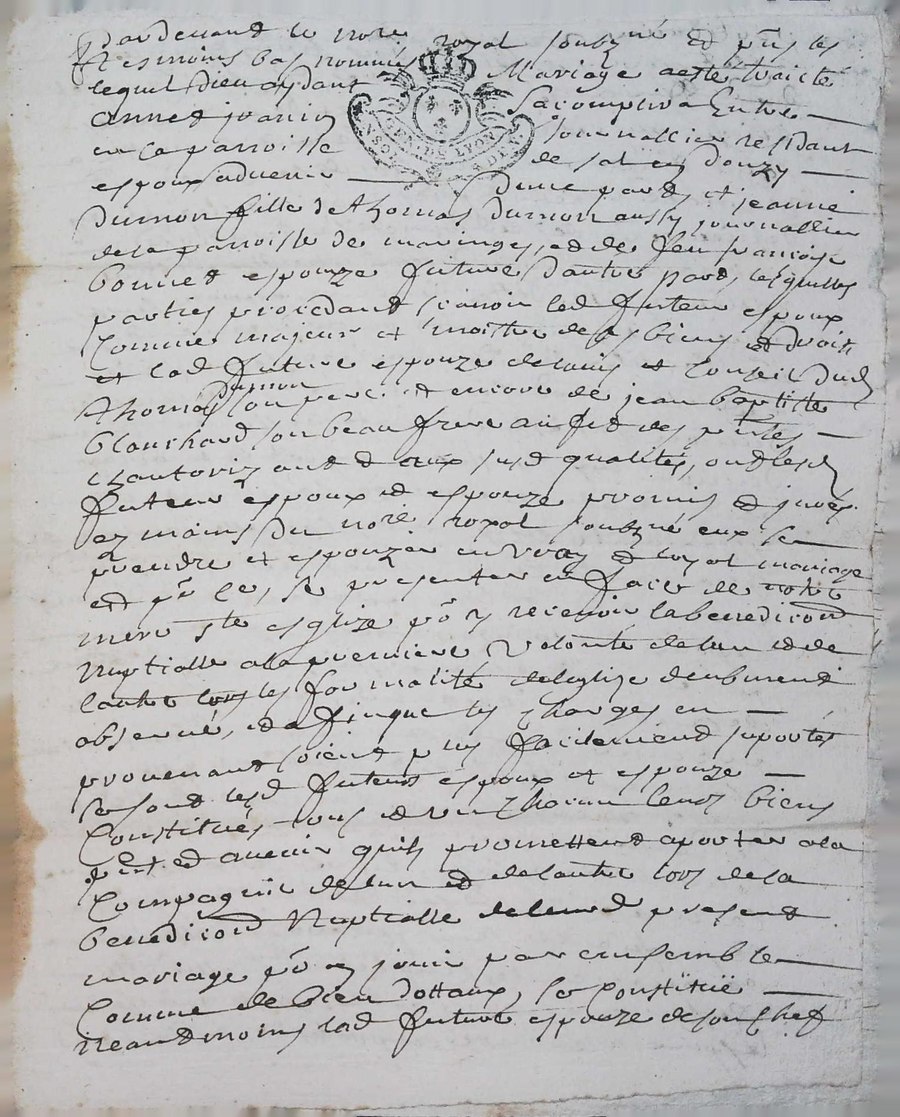 Pardevant le no.re royal soubz.né et p.ns les
tesmoins bas nommés
lequel Dieu aydant Mariage a esté traicté
sacomplira Entre
annet joanin journallier residant
en la parroisse de sal en Donzy
espoux advenir d'une part, et jeanne
Dumon fille de thomas Dumon aussy journallier
de la parroisse de maringes, et de feu francoise
bonnet espouze future d'autre part, lesquelles
parties procedant scavoir led futeur espoux
Comme majeur et maistre de ses biens et droits
et lad future espouze de lavis et Conseil dud
thomas dumon son pere et encore de jean baptiste
blanchard son beau frere au fet des p.ntes
lauthorizant d eux susd qualités, ont lesd
futeur espoux et espouze promis et juré
ez mains du no.re royal soubz.né eux se
prendre et espouzer en vray et loyal mariage
et p.r ce, se presenter en face de notre
mere s.te esglize p.r y recevoir la benedicon
Nuptialle a la premiere volonté de lun et de
lautre tous les formalité de leglize deubment
observé, et affin que les charges en
provenant soient plus facilement suportés
se sont lesd futeurs espoux et espouze
Constitués tous et un Chacun leurs biens
p.nt et avenir quils promettent aporter a la
Compagnie de lun et de lautre lors de la
benedicon Nuptialle de leurd present
mariage p.r en jouir par ensemble
Comme de bien dottaux, se Constituë
neandmoins lad future espouze de son Chef
GEN. DE LYON